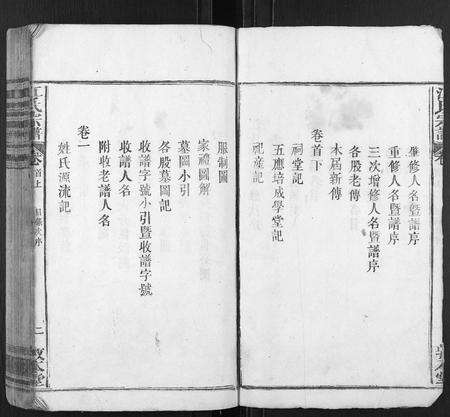 肇修人名暨譜序
重修人名暨譜序
三次增修人名暨譜序
各股老傳
本屆新傳
卷首下
祠堂記
五應培成學堂記
祀產記
服制圖
家禮圖劒
墓圖小引
各股墓圖記
收譜字號小引暨收譜字號
收譜人名
附收老譜人名
卷一
姓氏源流記
江氏宗譜
卷首上